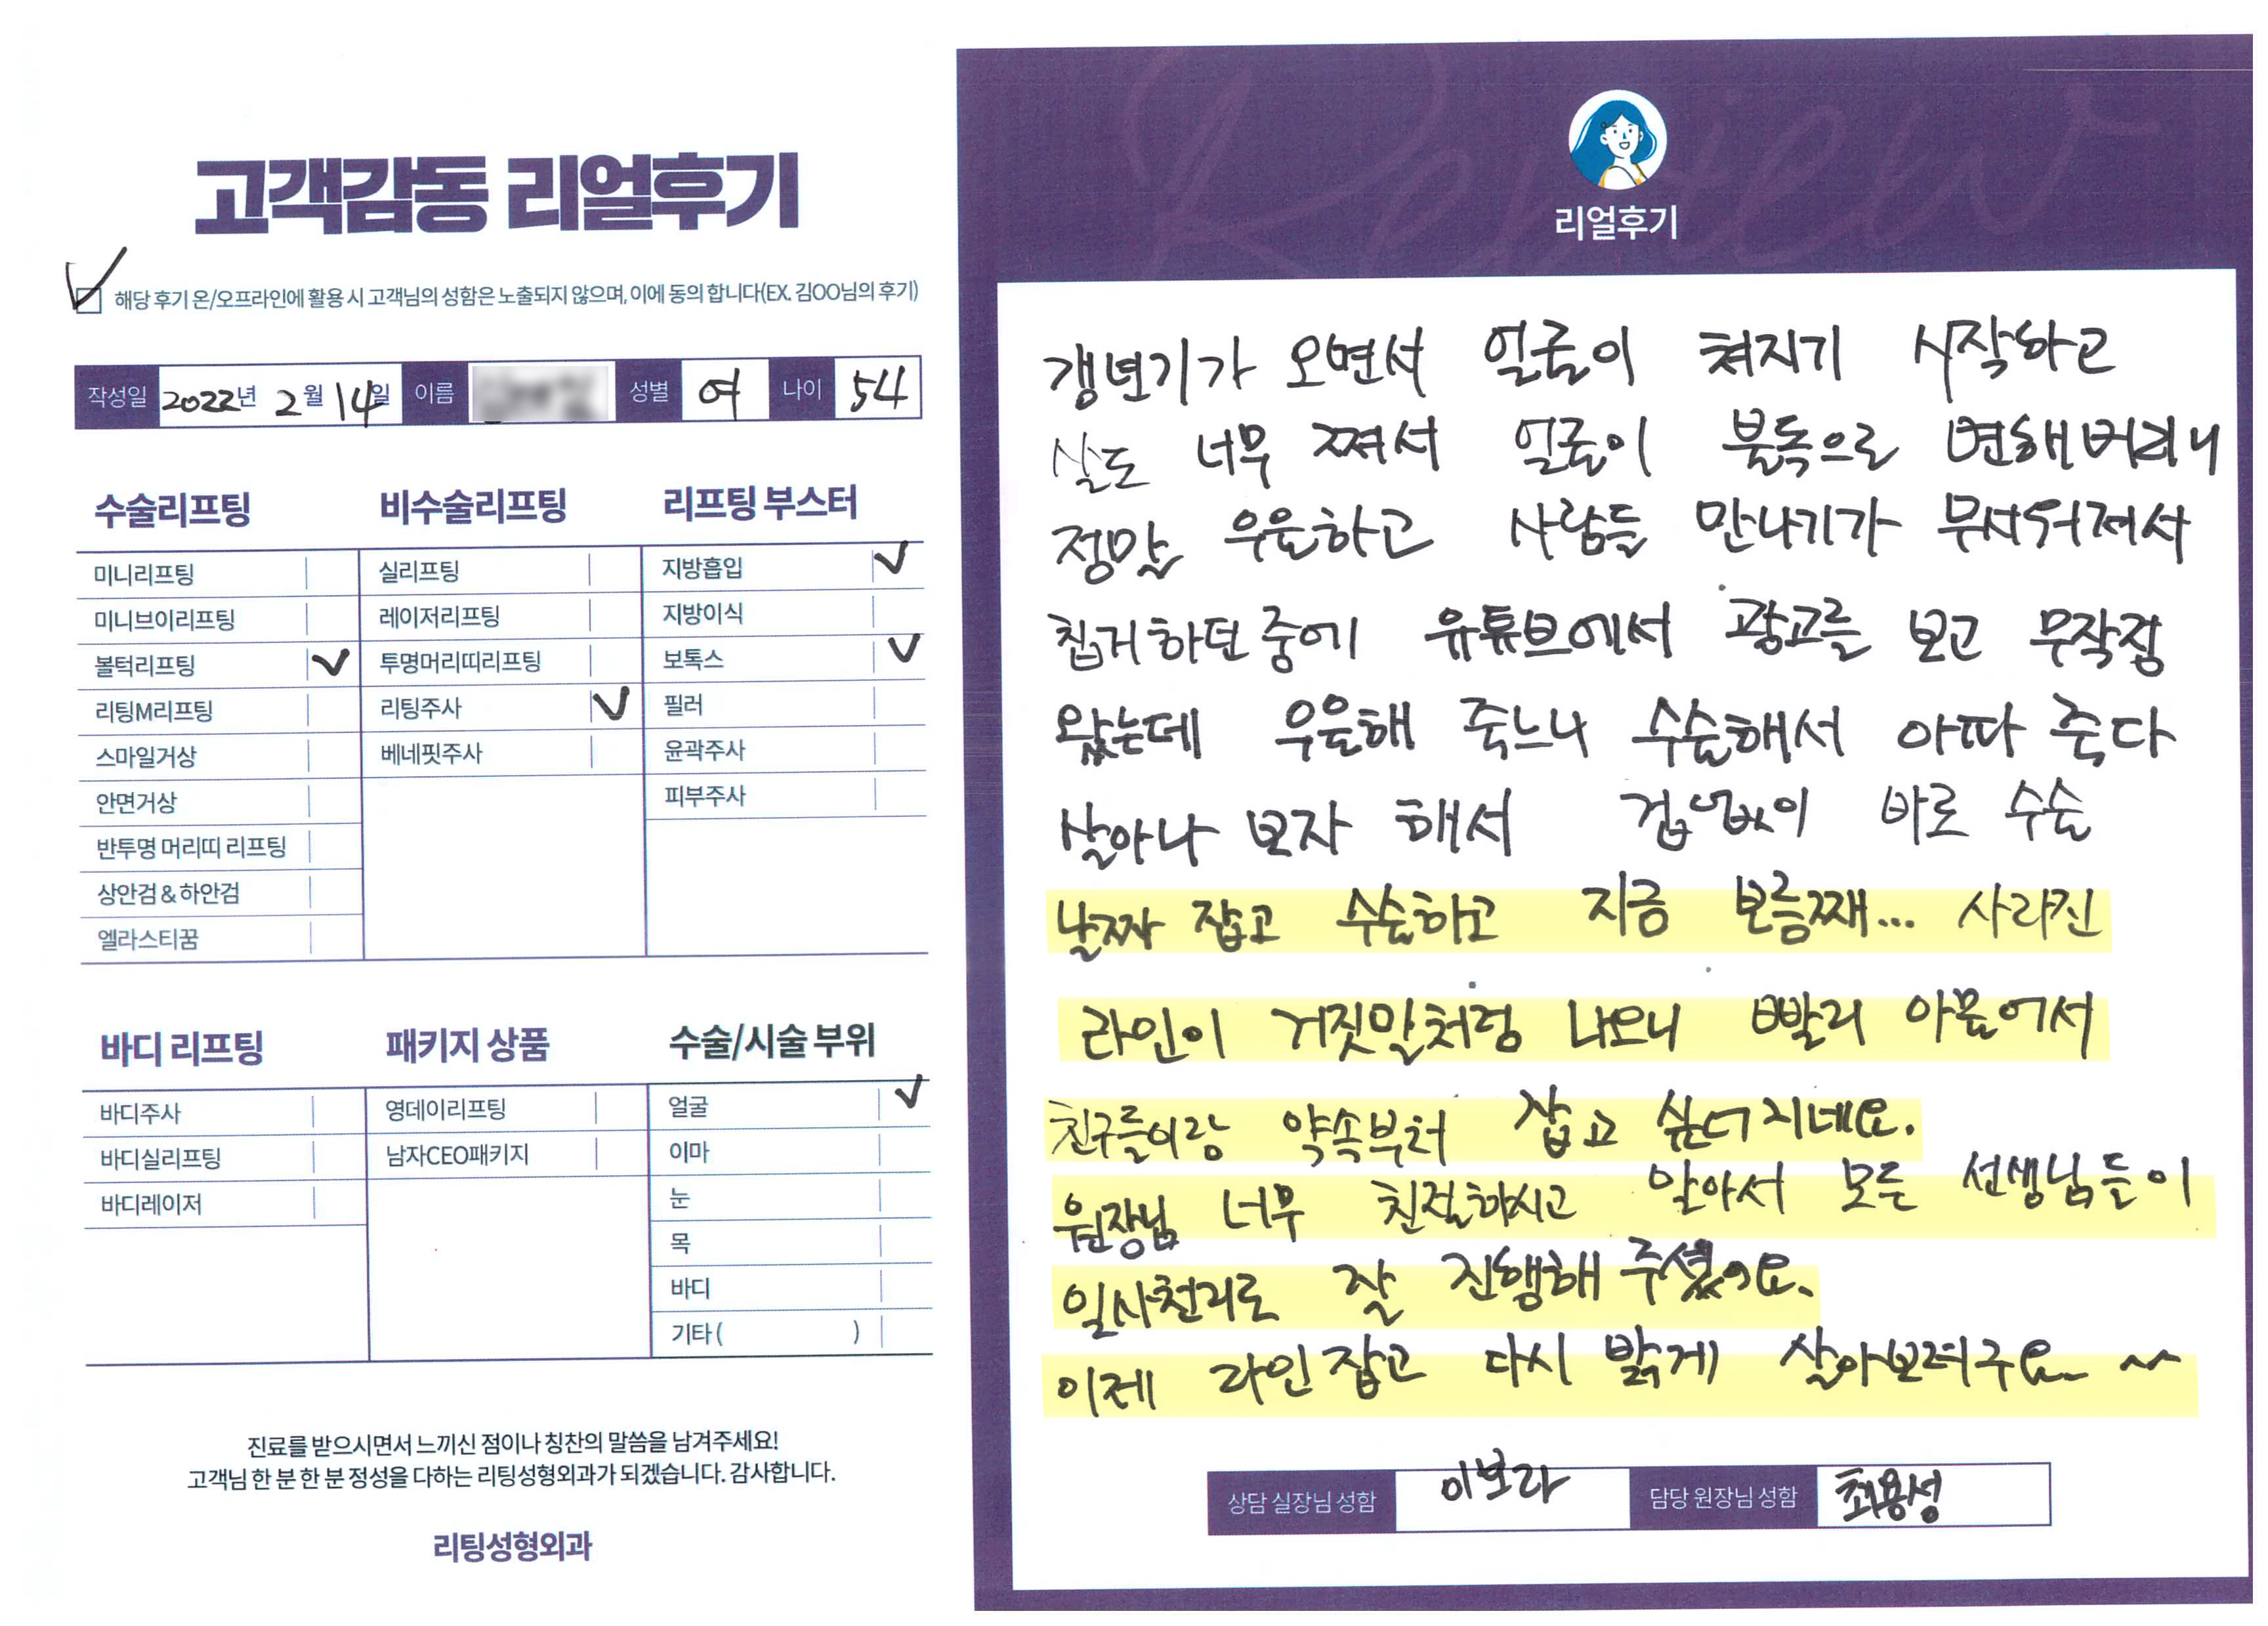 고객감동 리얼후기
해당 후기 온/오프라인에 활용 시 고객님의 성함은 노출되지 않으며, 이에 동의 합니다(EX. 김OO님의 후기)
작성일 2022년 2월 14일 이름 성별 여 나이 54
수술리프팅
미니리프팅
미니브이리프팅
볼턱리프팅
리팅M리프팅
스마일거상
안면거상
반투명 머리띠 리프팅
상안검 & 하안검
엘라스티꿈
비수술리프팅
실리프팅
레이저리프팅
투명머리띠리프팅
리팅주사
베네핏주사
리프팅 부스터
지방흡입
지방이식
보톡스
필러
윤곽주사
피부주사
바디 리프팅
바디주사
바디실리프팅
바디레이저
패키지 상품
영데이리프팅
남자CEO패키지
수술/시술 부위
얼굴
이마
눈
목
바디
기타 ( )
진료를 받으시면서 느끼신 점이나 칭찬의 말씀을 남겨주세요!
고객님 한 분 한 분 정성을 다하는 리팅성형외과가 되겠습니다. 감사합니다.
리팅성형외과
Review
리얼후기
갱년기가 오면서 얼굴이 쳐지기 시작하고
살도 너무 쪄서 얼굴이 불독으로 변해버리니
정말 우울하고 사람들 만나기가 무서워져서
칩거하던 중에 유튜브에서 광고를 보고 무작정
왔는데 우울해 죽느니 수술해서 아파 죽다
살아나 보자 해서 겁없이 바로 수술
날짜 잡고 수술하고 지금 보름째... 사라진
라인이 거짓말처럼 나오니 빨리 아물어서
친구들이랑 약속부터 잡고 싶어지네요.
원장님 너무 친절하시고 알아서 모든 선생님들이
일사천리로 잘 진행해 주셨어요.
이제 라인잡고 다시 밝게 살아보려구요~ ^^
상담 실장님 성함 이보라 담당 원장님 성함 최용성